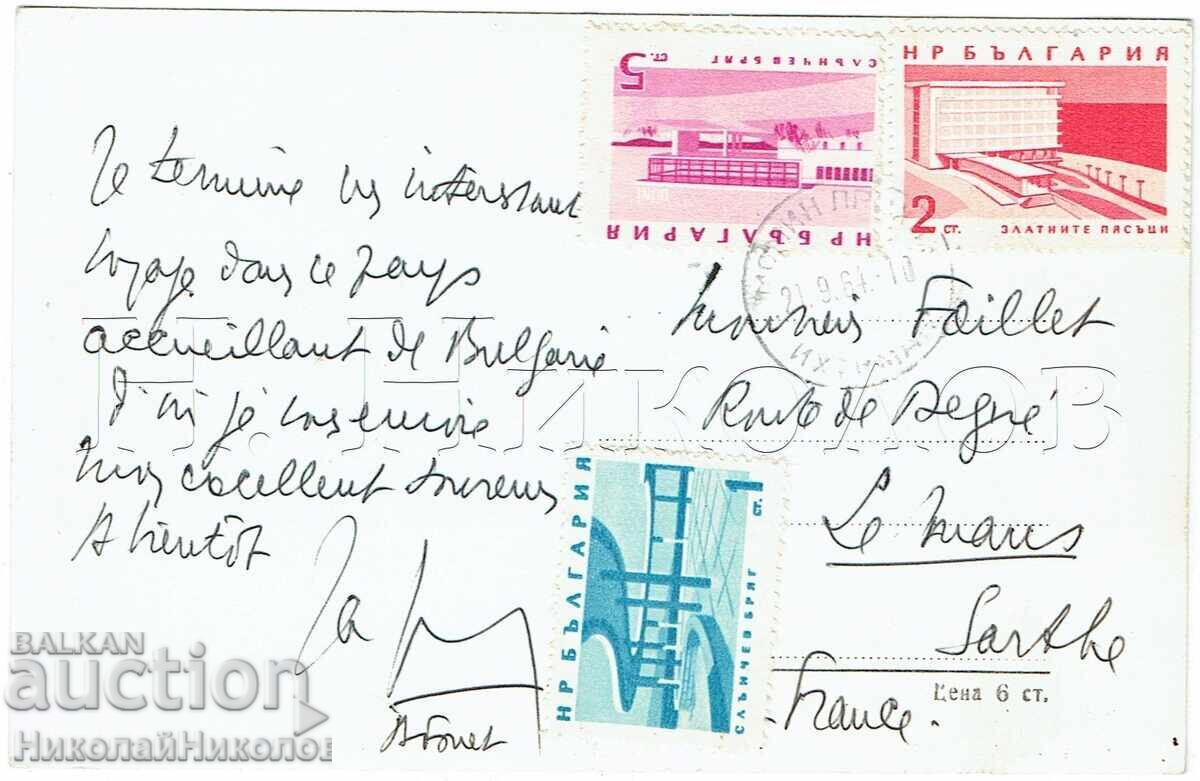 Je termine un interessant
voyage dans ce pays
accueillant de Bulgarie
d'où je vous envoie
mon excellent souvenir
A bientôt
5 СТ. СЛЪНЧЕВ БРЯГ
НР БЪЛГАРИЯ
НР БЪЛГАРИЯ
2 СТ. ЗЛАТНИТЕ ПЯСЪЦИ
21.9.64.-10
Faillet
Route de Degré
Le Mans
Sarthe
France.
1 СТ.
НР БЪЛГАРИЯ
СЛЪНЧЕВ БРЯГ
Цена 6 ст.
Н. НИКОЛОВ
BALKAN
auction
НиколайНиколов